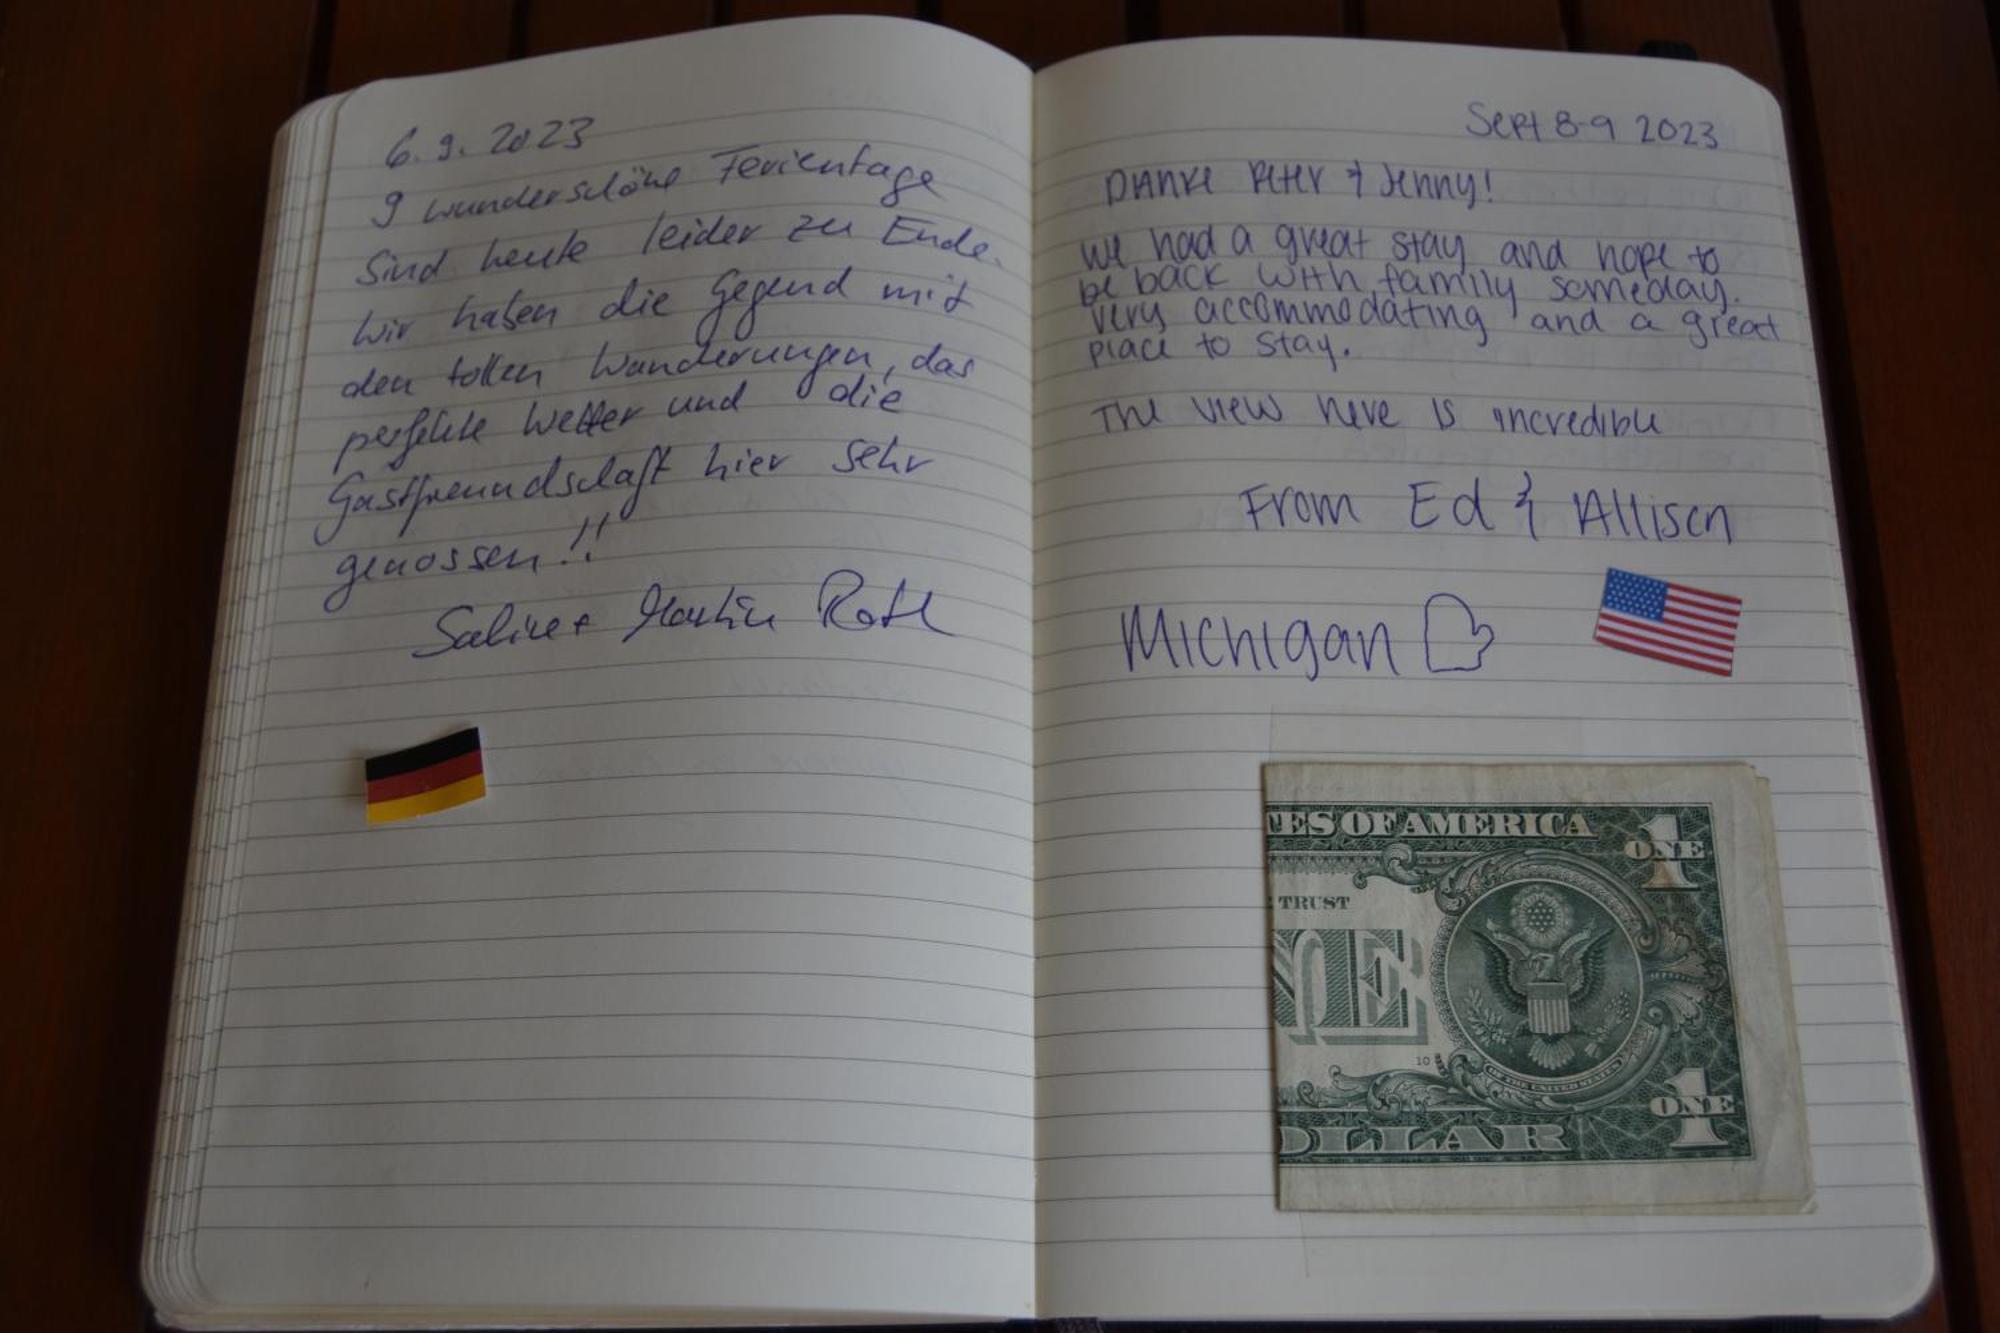 6.9.2023
9 wunderschöne Ferientage
sind heute leider zu Ende.
Wir haben die Gegend mit
den tollen Wanderungen, das
perfekte Wetter und die
Gastfreundschaft hier sehr
genossen!!
Sabine + Martin Roth
Sept 8-9 2023
DANKE Peter & Jenny!
we had a great stay and hope to
be back with family someday.
very accommodating and a great
place to stay.
The view here is incredible
From Ed & Allison
Michigan
TES OF AMERICA
1
ONE
TRUST
NE
10
OF THE UNITED STATES
1
ONE
OLLAR